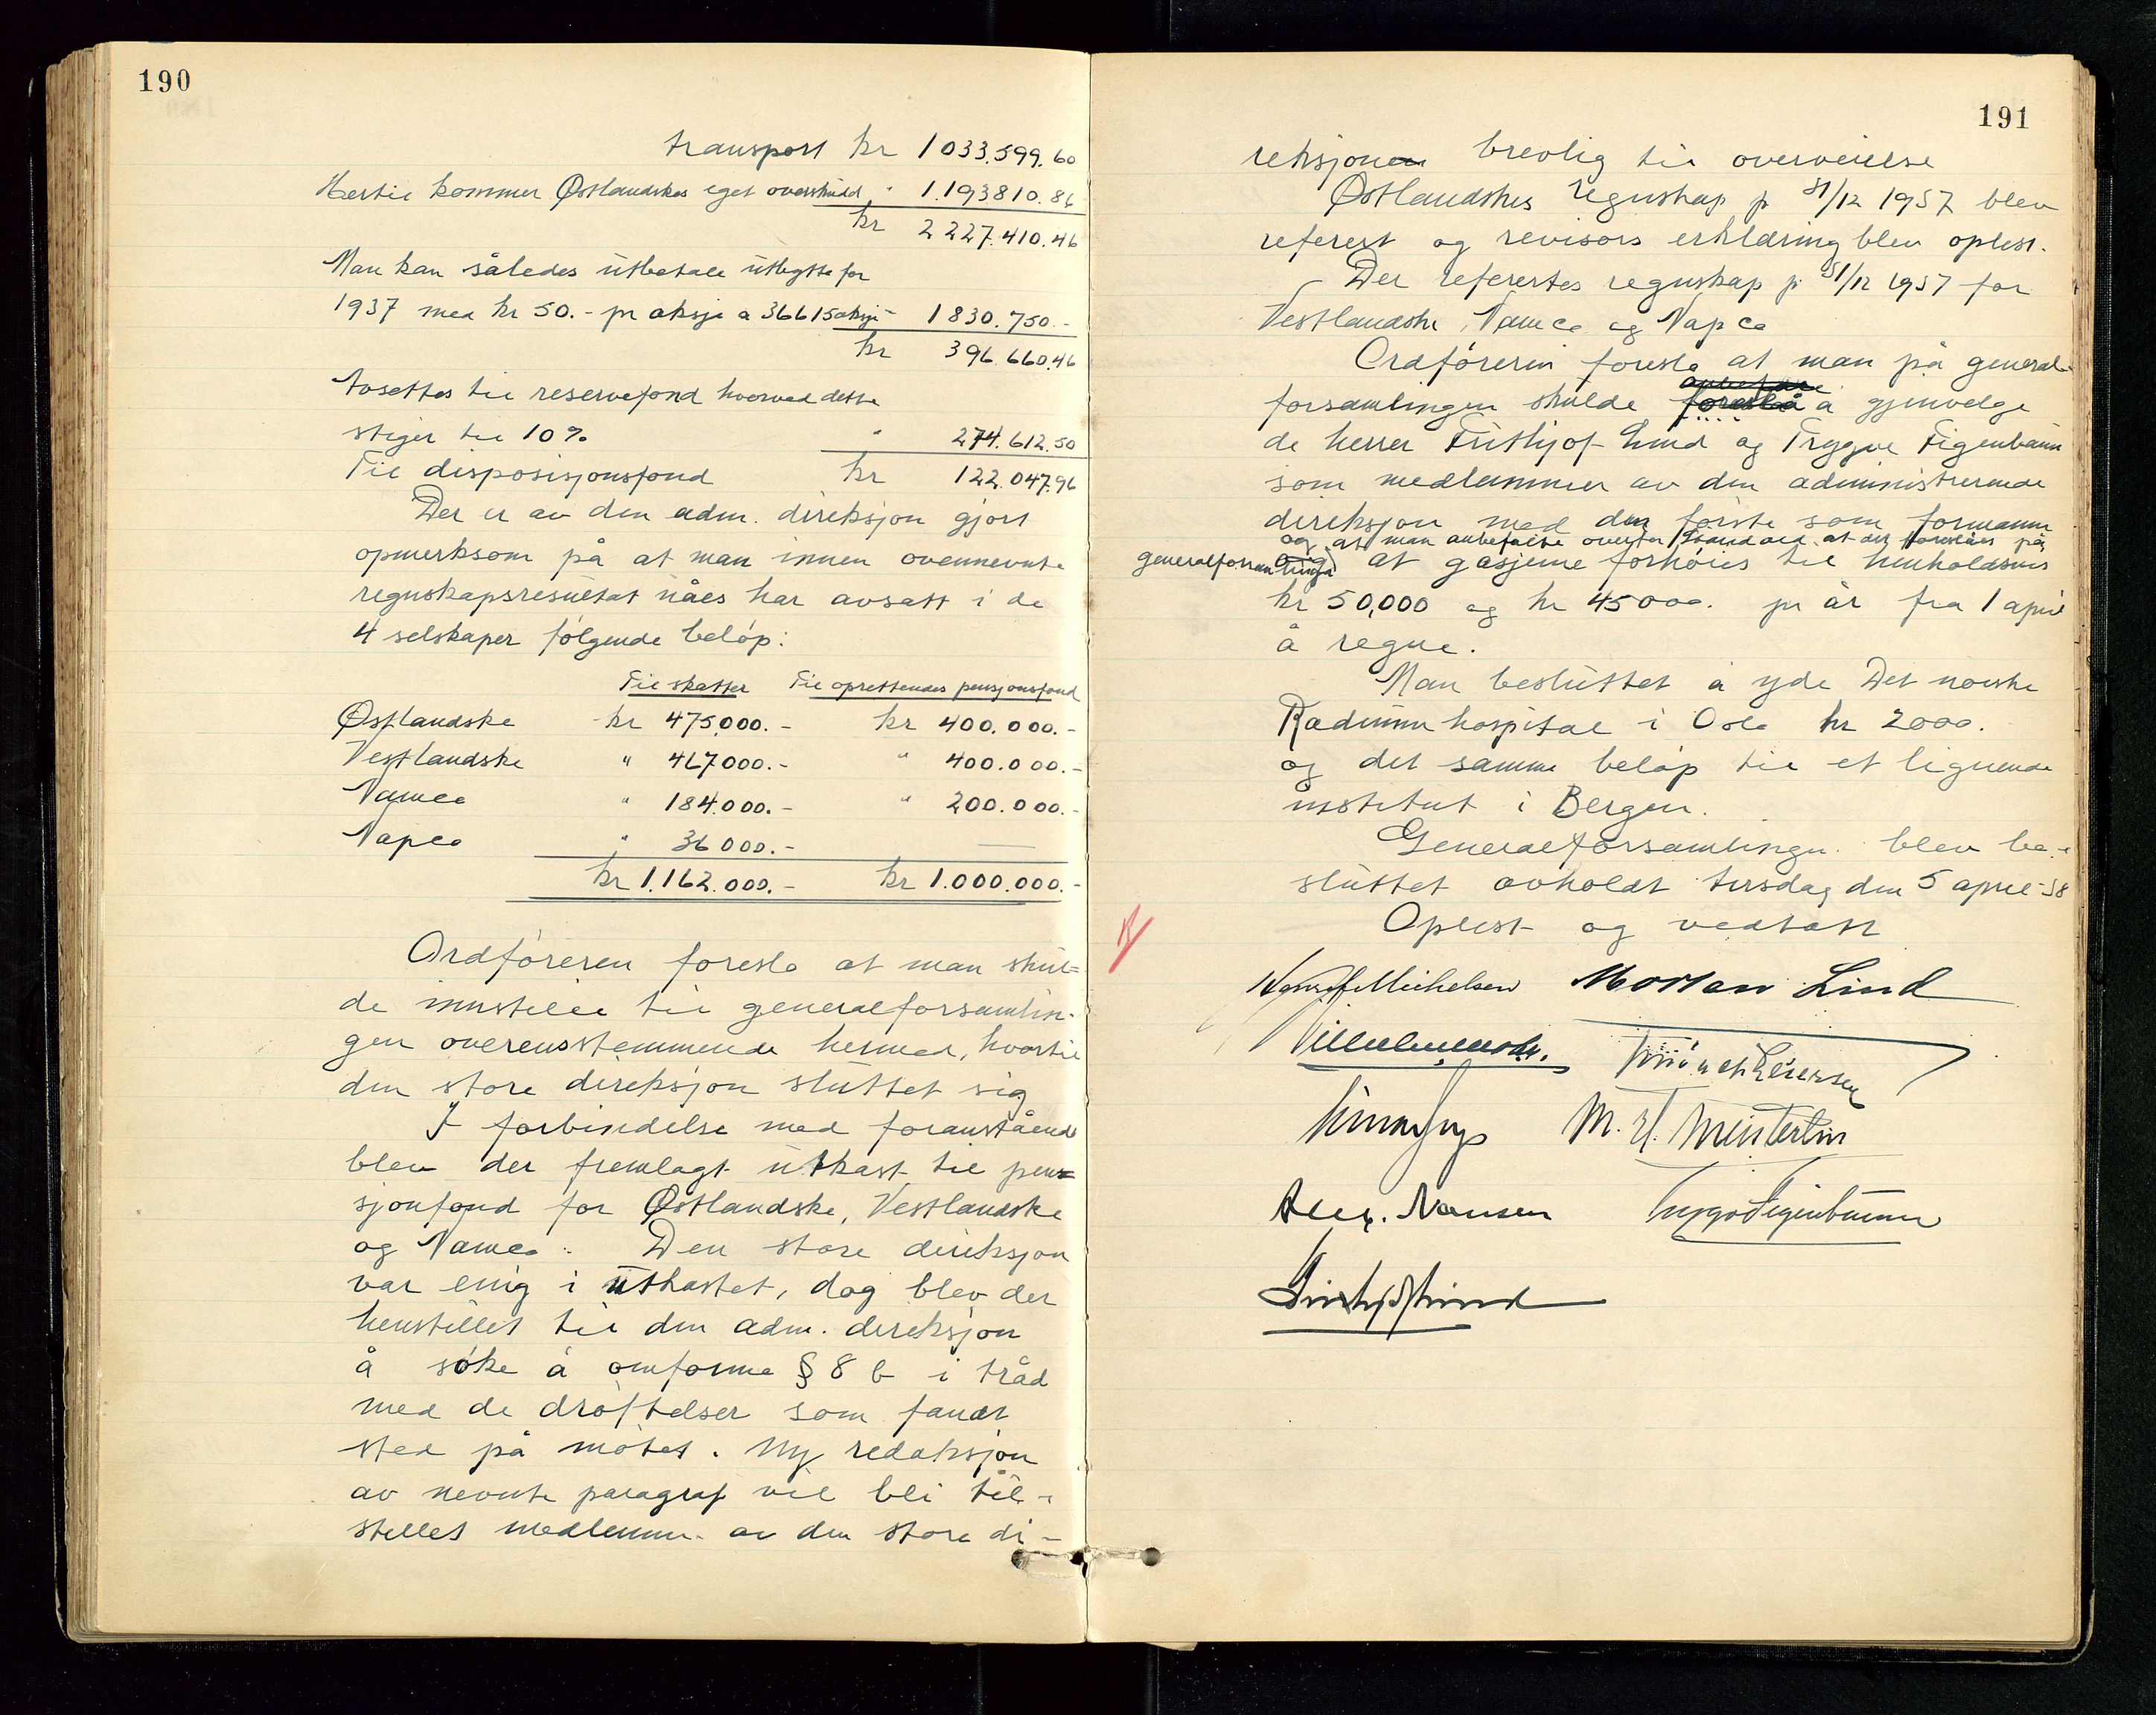 190
transport kr 1033.599.60
Hertil kommer Østlandskes eget overskudd " 1.193810.86
kr 2227.410.46
Man kan således utbetale utbytte for
1937 med kr 50.- pr aksje a 36615 aksjer 1830.750.-
kr 396.660.46
Avsettes til reservefond hvorved dette
stiger til 10% " 274.612.50
Til disposisjonsfond kr 122.047.96
Der er av den adm. direksjon gjort
opmerksom på at man innen ovennevnte
regnskapsresultat nåes har avsatt i de
4 selskaper følgende beløp:
Til skatter Til oprettendes pensjonsfond
Østlandske kr 475.000.- kr 400.000.-
Vestlandske " 467000.- " 400.000.-
Namco " 184.000.- " 200.000.-
Napco " 36000.- —
kr 1.162.000.- kr 1.000.000.-
Ordføreren foreslo at man skul=
de innstille til generalforsamlin-
gen overensstemmende hermed, hvortil
den store direksjon sluttet sig
I forbindelse med foranstående
blev der fremlagt utkast til pen=
sjonfond for Østlandske, Vestlandske
og Namco. Den store direksjon
var enig i utkastet, dog blev der
henstillet til den adm. direksjon
å søke å omforme § 8 b i tråd
med de drøftelser som fandt
sted på møtet. Ny redaksjon
av nevnte paragraf vil bli til-
stillet medlemm. av den store di-
191
reksjonen brevlig til overveielse
Østlandskes regnskap p 31/12 1937 blev
referert og revisors erklæring blev oplest.
Der refertes regnskap p. 31/12 1937 for
Vestlandske, Namco og Napco
Ordføreren foreslo at man på general-
anbefale
forsamlingen skulde foreslå å gjenvelge
de herrer Frithjof Lind og Trygve Figenbaum
som medlemmer av den administrerende
direksjon med den første som formann
og at man anbefalte overfor Standard at der foreslåes på
generalforsamlinga og at gasjene forhøies til henholdsvis
kr 50,000 og kr 45000. pr år fra 1 april
å regne.
Man besluttet å yde Det norske
Radiumhospital i Oslo kr 2000.
og det samme beløp til et lignende
institut i Bergen.
Generalforsamlingen blev be-
sluttet avholdt tirsdag den 5 april -38
Oplest og vedtatt
Michelsen Morten Lind
M. H. Meinterlin
Alex. Nansen Trygve Figenbaum
Frithjof Lind